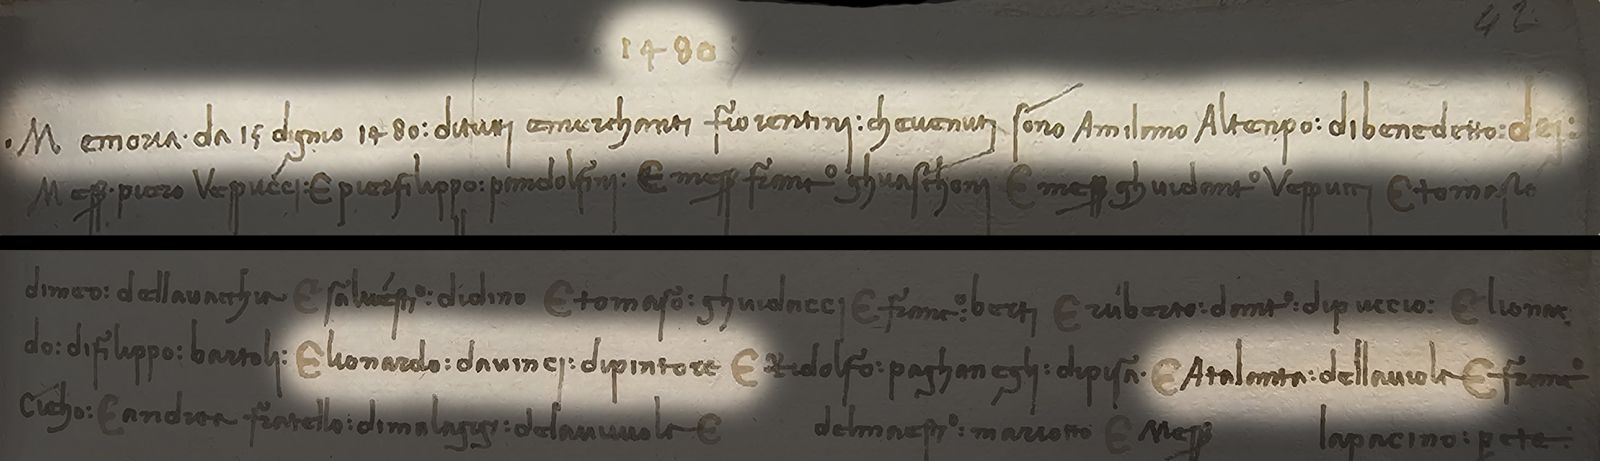 42
1480
Memoria · da 15 dignio 1480: ditutti emerchanti fiorentinj: chevenutj sono Amilano Altenpo: dibenedetto: dej:
Mess · piero Vespuccj: E pierfilippo: pandolfinj: E mess franco ghuaschonj E mess ghuidanto Vespucci E tomaso
dimeo: dellavachia E salvestro: didino E tomaso: ghuidaccj E franco: bertj E ruberto: danto: dipuccio: E lionar
do: difilippo: bartolj: E lionardo: davincj: dipintore E Ridolfo: paghaneglj: dipisa · E Atalanta: dellaviola E franco
E andrea fratello: di delaviuola E delmaestro: mariotto E Mess lapacino: prete: